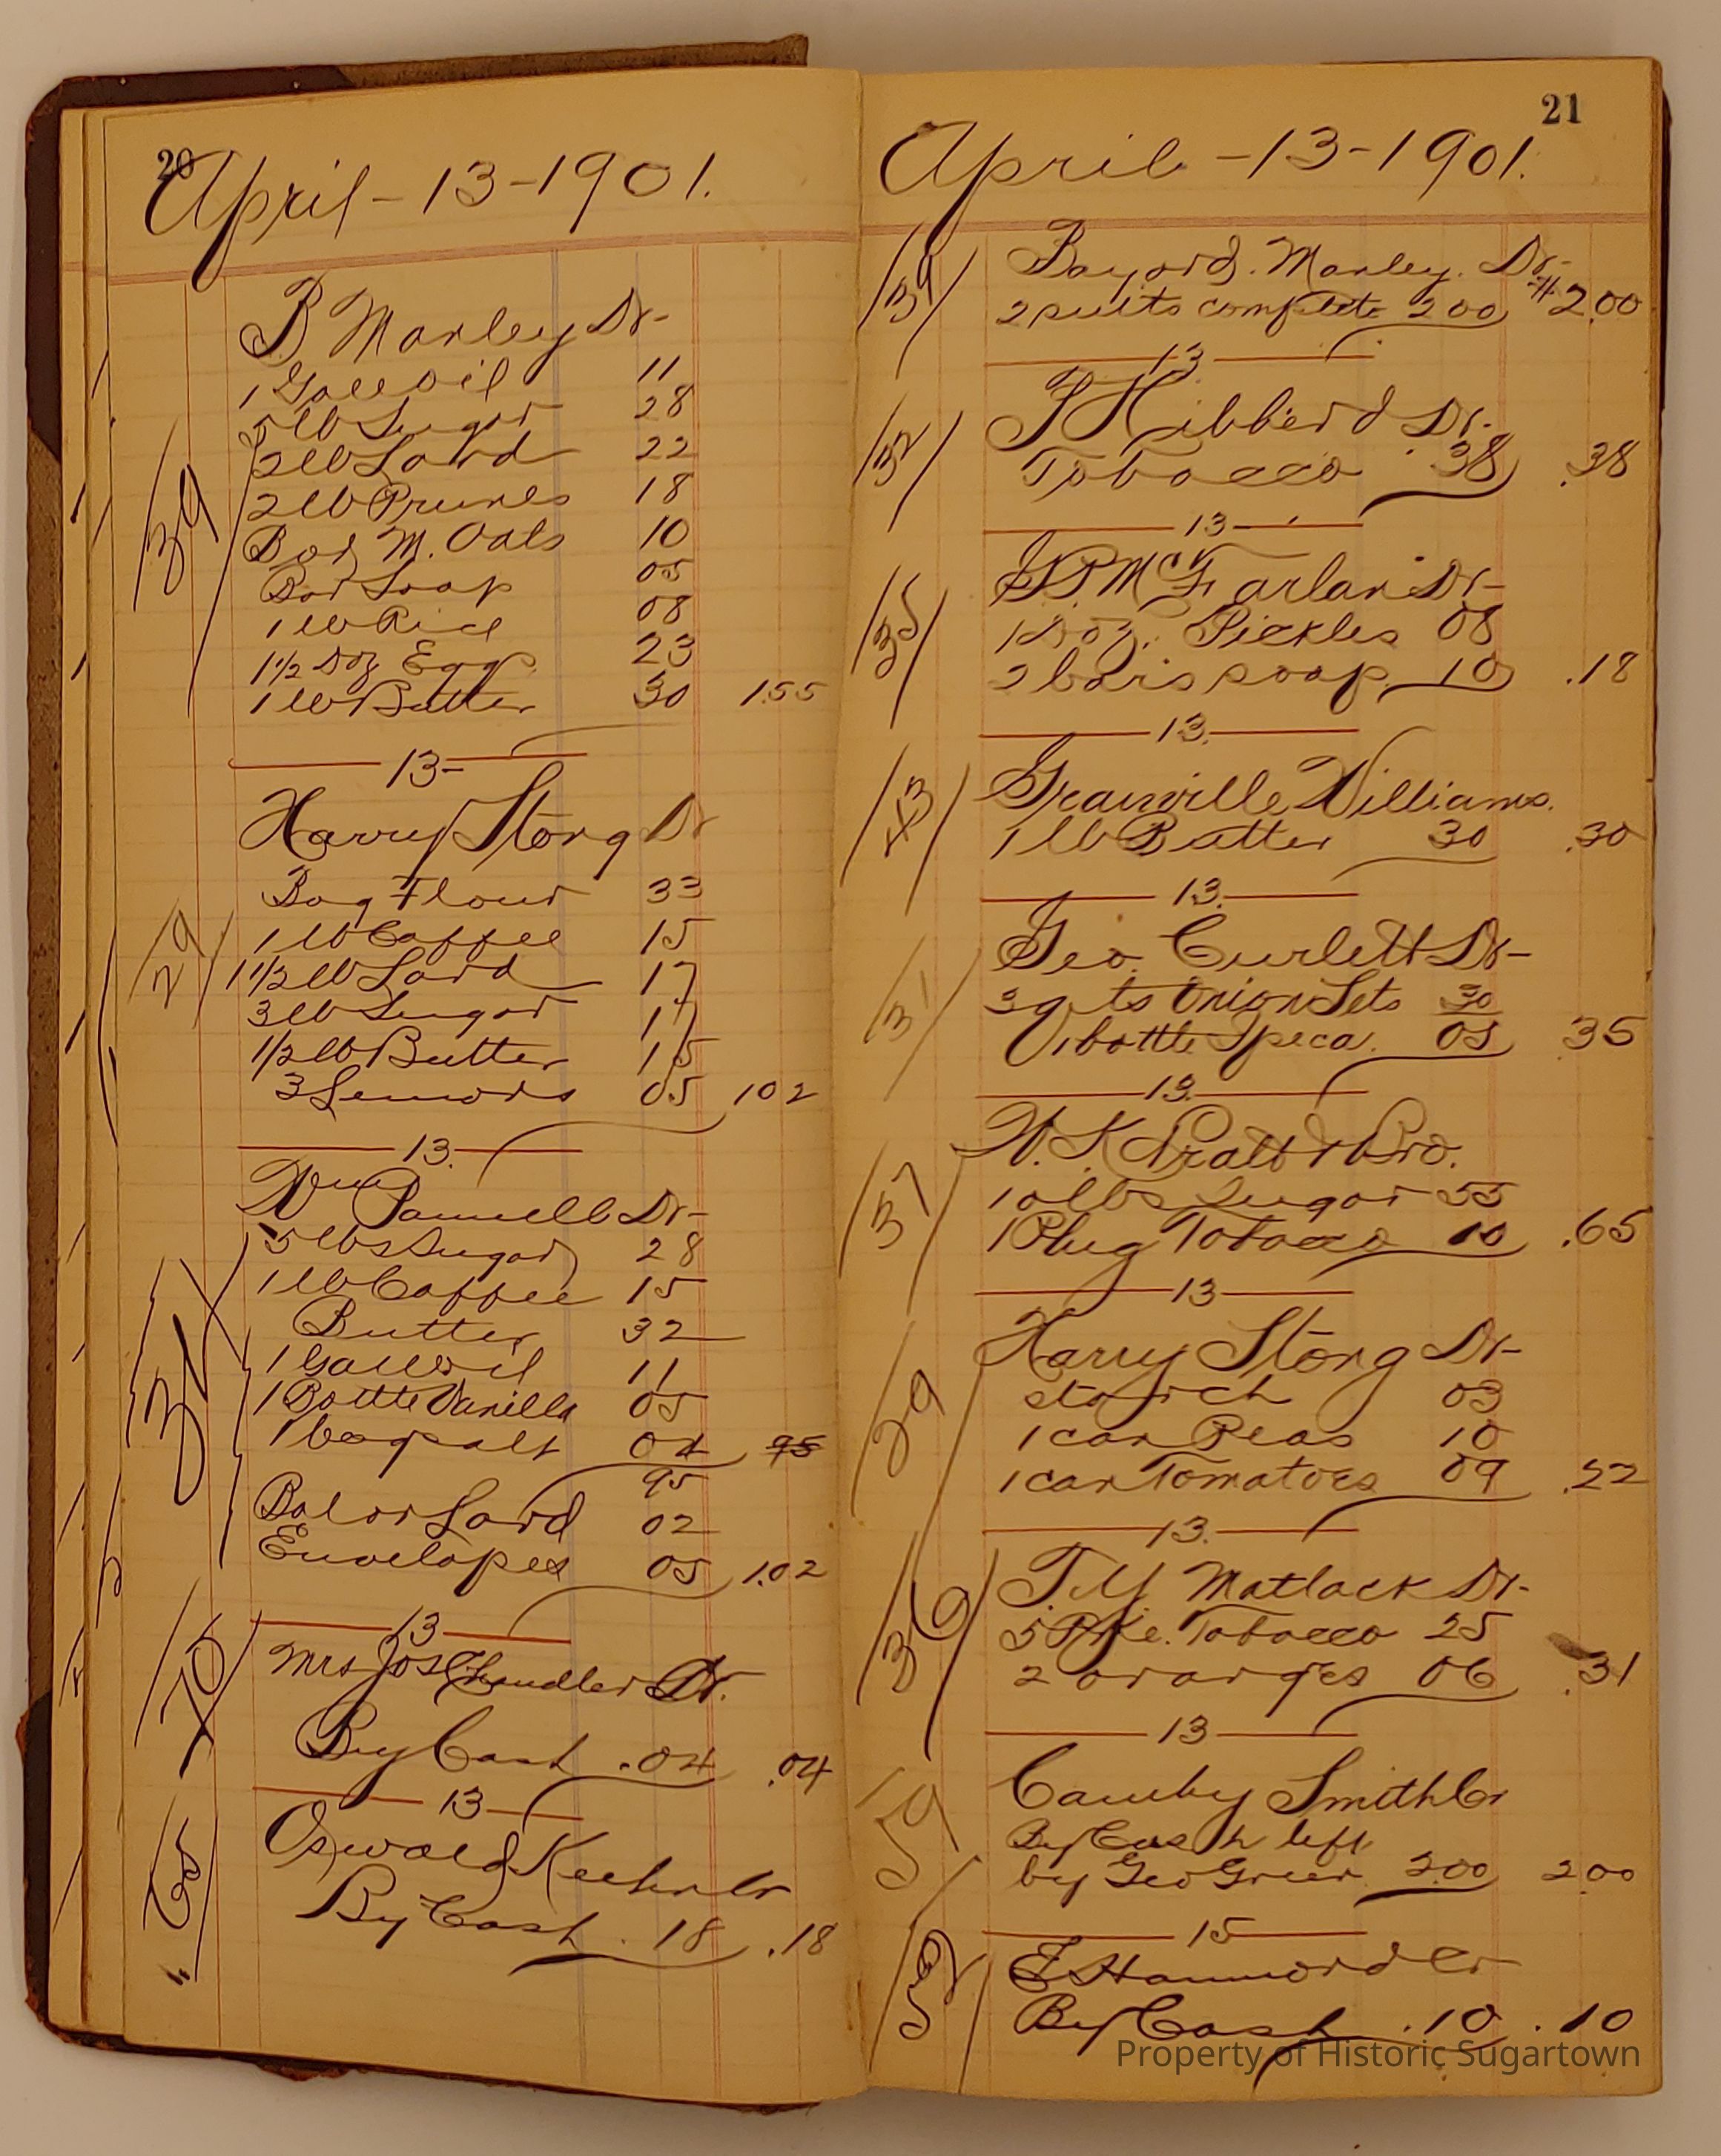 20
April-13-1901.
B Manley Dr-
1 Gall Oil 11
5 lb Sugar 28
2 lb Lard 22
2 lb Prunes 18
Box M. Oats 10
Bar Soap 05
1 lb Rice 08
1 1/2 Doz Eggs 23
1 lb Butter 30 1.55
39
13-
Harry Stong Dr
Bag Flour 33
1 lb Coffee 15
1 1/2 lb Lard 17
3 lb Sugar 17
1/2 lb Butter 15
3 Lemons 05 102
29
13.
Wm Pannell Dr-
5 lbs Sugar 28
1 lb Coffee 15
Butter 32
1 Gall Oil 11
1 Bottle Vanilla 05
1 bag salt 04 95
95
Bal on Lard 02
Envelopes 05 1.02
31
13
Mrs Jos Chandler Dr.
By Cash .04 .04
70
13
Oswald Keehn Cr
By Cash .18 .18
21
April-13-1901.
39
Bayard. Manley. Dr-
2 suits complete 200 #2.00
13
32
Hibberd Dr.
Tobacco 38 .38
13
35
McFarlan Dr-
1 Doz. Pickles 08
2 bars soap 10 .18
13.
43
Granville Williams.
1 lb Butter 30 .30
13.
31
Geo. Curlett Dr-
3 qts Onion Sets 30
1 bottle Ipeca. 05 35
13.
37
W. K. Pratt & Bro.
10 lbs Sugar 55
1 Plug Tobacco 10 .65
13
29
Harry Stong Dr-
starch 03
1 can Peas 10
1 can Tomatoes 09 .22
13.
36
Matlack Dr-
5 Pkge. Tobacco 25
2 oranges 06 .31
13
59
Camby Smith Cr
By Cash left
by Geo Green 2.00 2.00
15
Hammond Cr
By Cash .10 .10
Property of Historic Sugartown